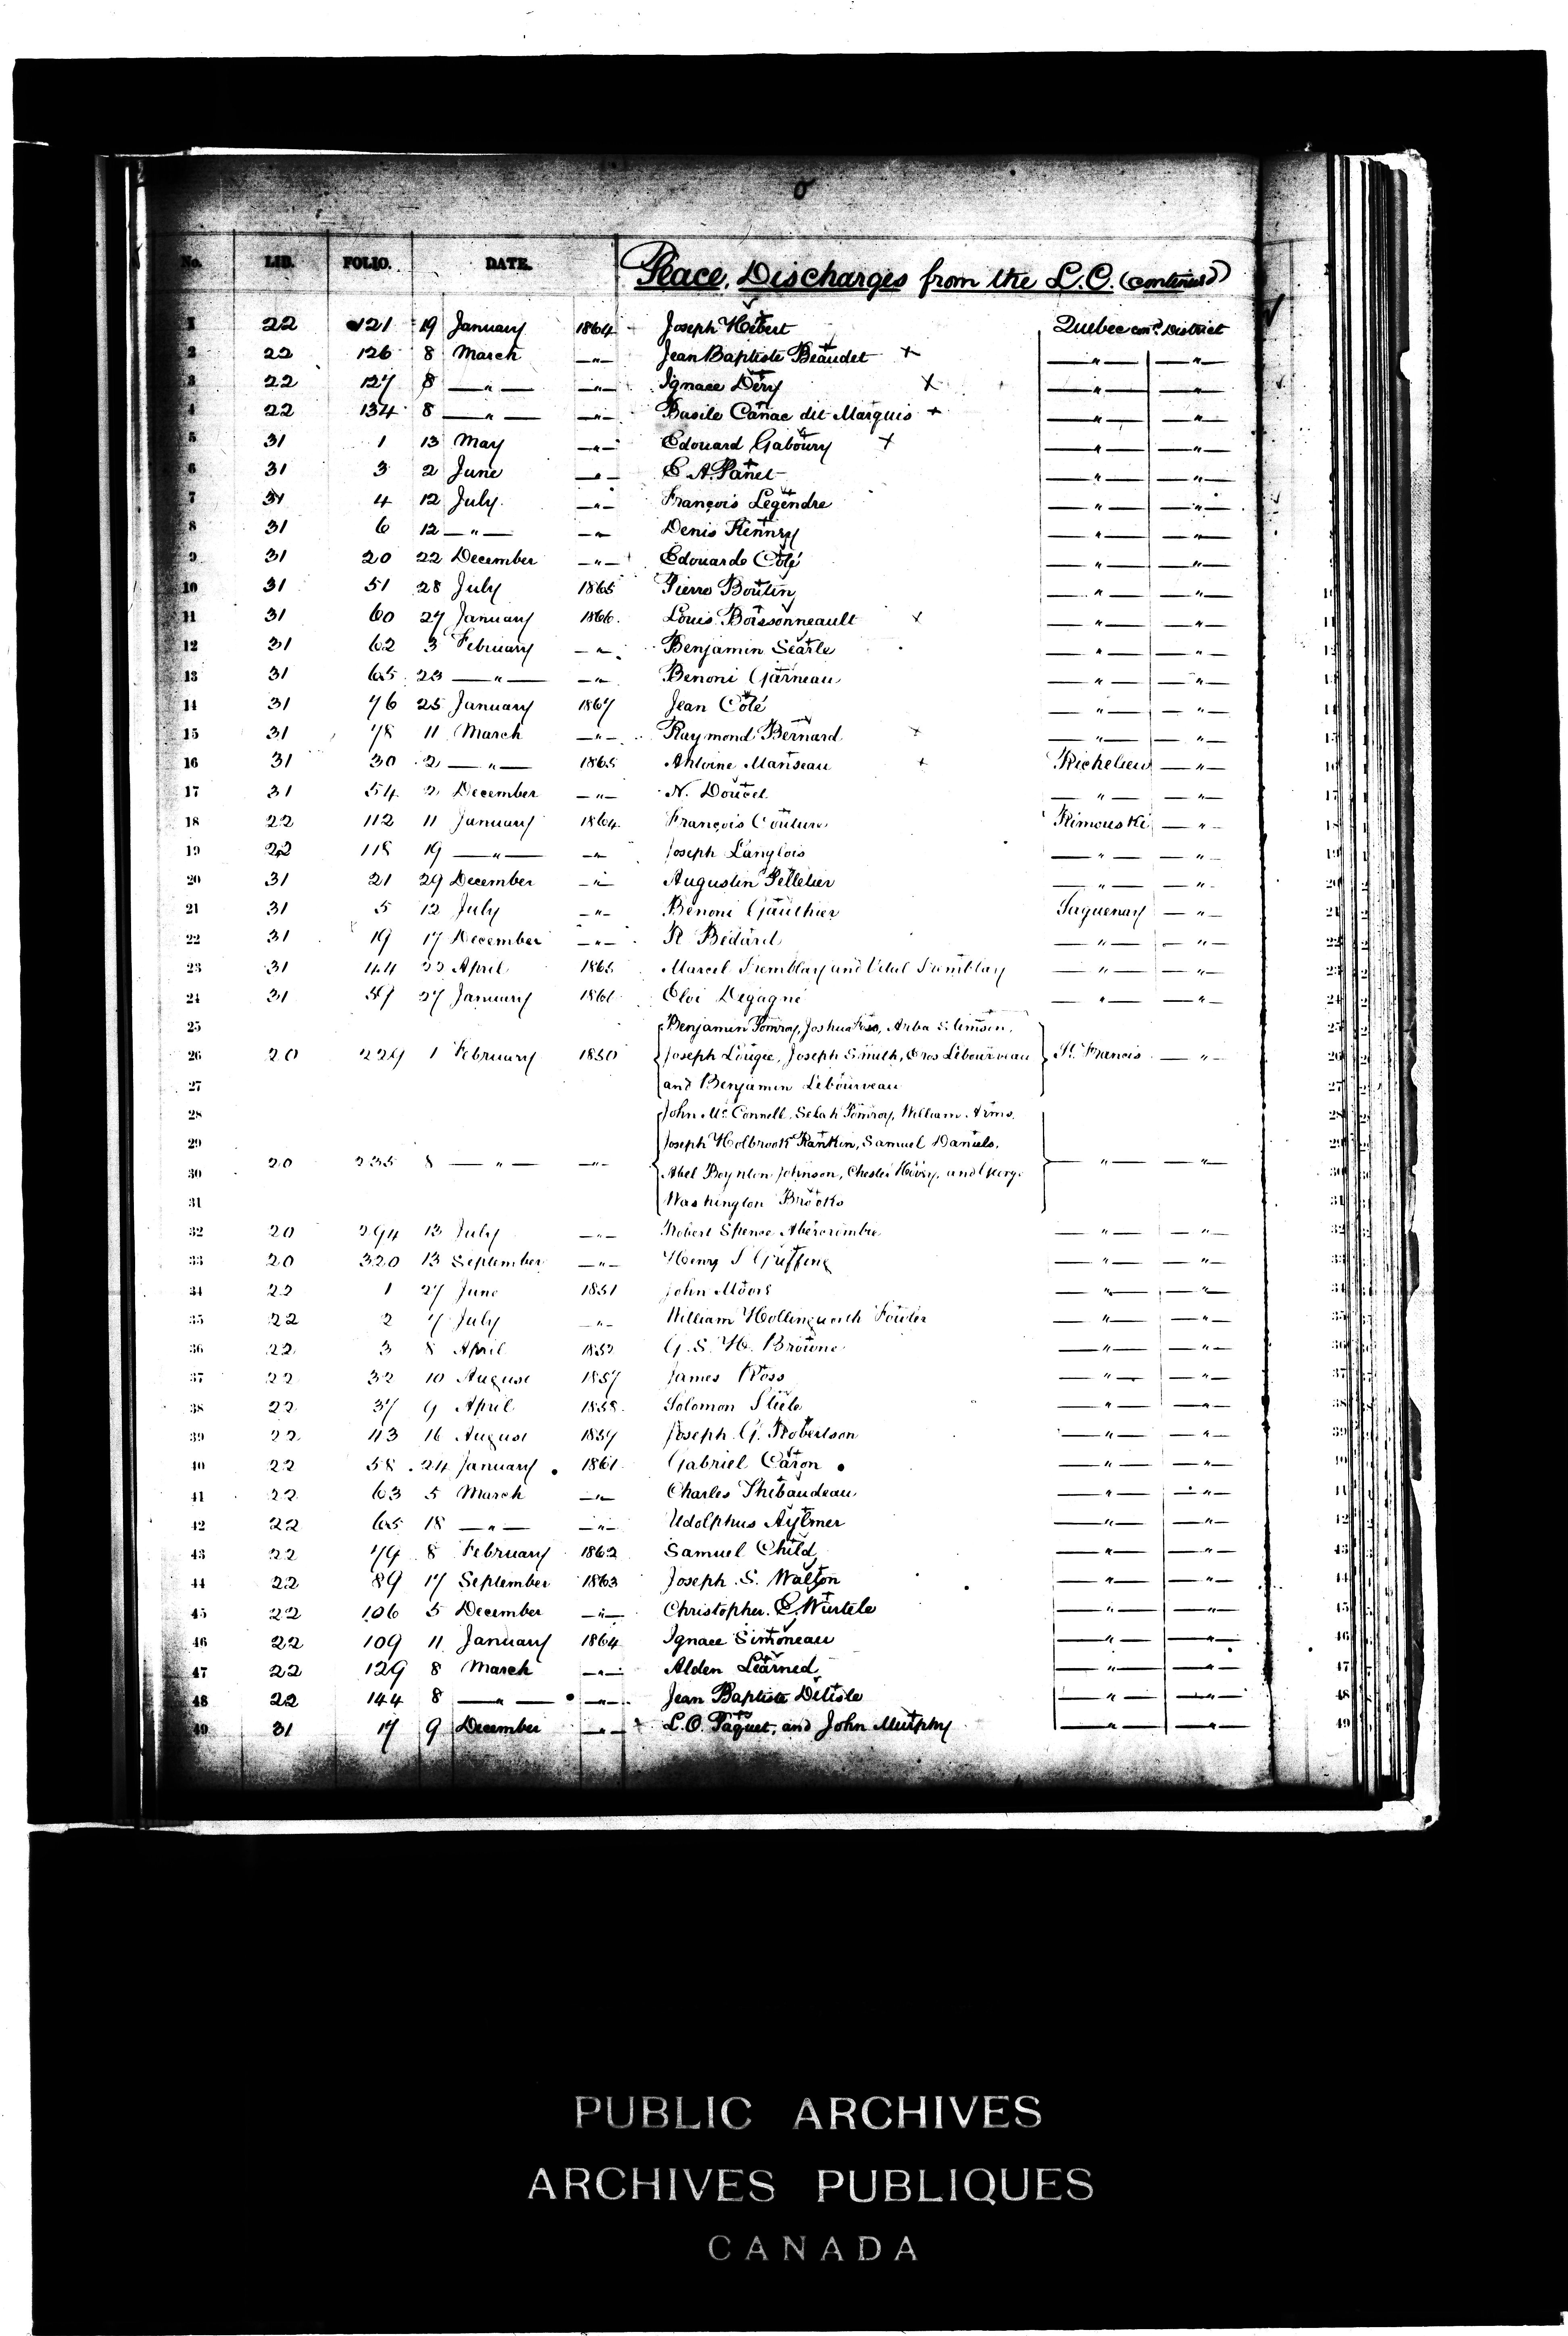 No. LIB. FOLIO. DATE. Peace, Discharges from the L.C. (continued)
1 22 121 19 January 1864 Joseph Hébert Quebec District
2 22 126 8 March —"— Jean Baptiste Beaudet + —"— —"—
3 22 127 8 —"— —"— Ignace Déry X —"— —"—
4 22 134 8 —"— —"— Basile Canac dit Marquis + —"— —"—
5 31 1 13 May —"— Edouard Gaboury + —"— —"—
6 31 3 2 June —"— E. A. Panet —"— —"—
7 31 4 12 July —"— François Legendre —"— —"—
8 31 6 12 —"— —"— Denis Kenney —"— —"—
9 31 20 22 December —"— Edouard Coté —"— —"—
10 31 51 28 July 1865 Pierre Boutin —"— —"—
11 31 60 27 January 1866 Louis Boissonneault x —"— —"—
12 31 62 3 February —"— Benjamin Searle —"— —"—
13 31 65 23 —"— —"— Benoni Garneau —"— —"—
14 31 76 25 January 1867 Jean Coté —"— —"—
15 31 78 11 March —"— Raymond Bernard x —"— —"—
16 31 30 2 —"— 1865 Antoine Manseau + Richelieu —"—
17 31 54 2 December —"— N. Doucet —"— —"—
18 22 112 11 January 1864 François Couture Rimouski —"—
19 22 118 19 —"— —"— Joseph Langlois —"— —"—
20 31 21 29 December —"— Augustin Pelletier —"— —"—
21 31 5 12 July —"— Benoni Gauthier Saguenay —"—
22 31 19 17 December —"— R Bédard —"— —"—
23 31 44 22 April 1865 Marcel Tremblay and Vital Tremblay —"— —"—
24 31 59 27 January 1866 Eloi Degagné —"— —"—
25 Benjamin Pomroy, Joshua Foss, Arba Stimson,
26 20 229 1 February 1850 Joseph Lougee, Joseph Smith, Oros Lebourveau St. Francis —"—
27 and Benjamin Lebourveau
28 John McConnell, Selah Pomroy, William Arms,
29 Joseph Holbrook Rankin, Samuel Daniels,
20 235 8 —"— —"— —"— —"—
30 Abel Boynton Johnson, Chester Hovey, and George
31 Washington Brooks
32 20 294 13 July —"— Robert Spence Abercrombie —"— —"—
33 20 320 13 September —"— Henry S Griffing —"— —"—
34 22 1 27 June 1851 John Moore —"— —"—
35 22 2 7 July —"— William Hollingworth Fowler —"— —"—
36 22 3 8 April 1852 G. S. H. Browne —"— —"—
37 22 32 10 August 1857 James Ross —"— —"—
38 22 37 9 April 1858 Solomon Steele —"— —"—
39 22 43 16 August 1859 Joseph G. Robertson —"— —"—
40 22 58 24 January 1861 Gabriel Caron —"— —"—
41 22 63 5 March —"— Charles Thibaudeau —"— —"—
42 22 65 18 —"— —"— Udolphus Aylmer —"— —"—
43 22 79 8 February 1862 Samuel Child —"— —"—
44 22 89 17 September 1863 Joseph. S. Walton —"— —"—
45 22 106 5 December —"— Christopher. C. Würtele —"— —"—
46 22 109 11 January 1864 Ignace Simoneau —"— —"—
47 22 129 8 March —"— Alden Learned —"— —"—
48 22 144 8 —"— —"— Jean Baptiste Délisle —"— —"—
49 31 17 9 December —"— L.O. Paquet, and John Murphy —"— —"—
PUBLIC ARCHIVES
ARCHIVES PUBLIQUES
CANADA